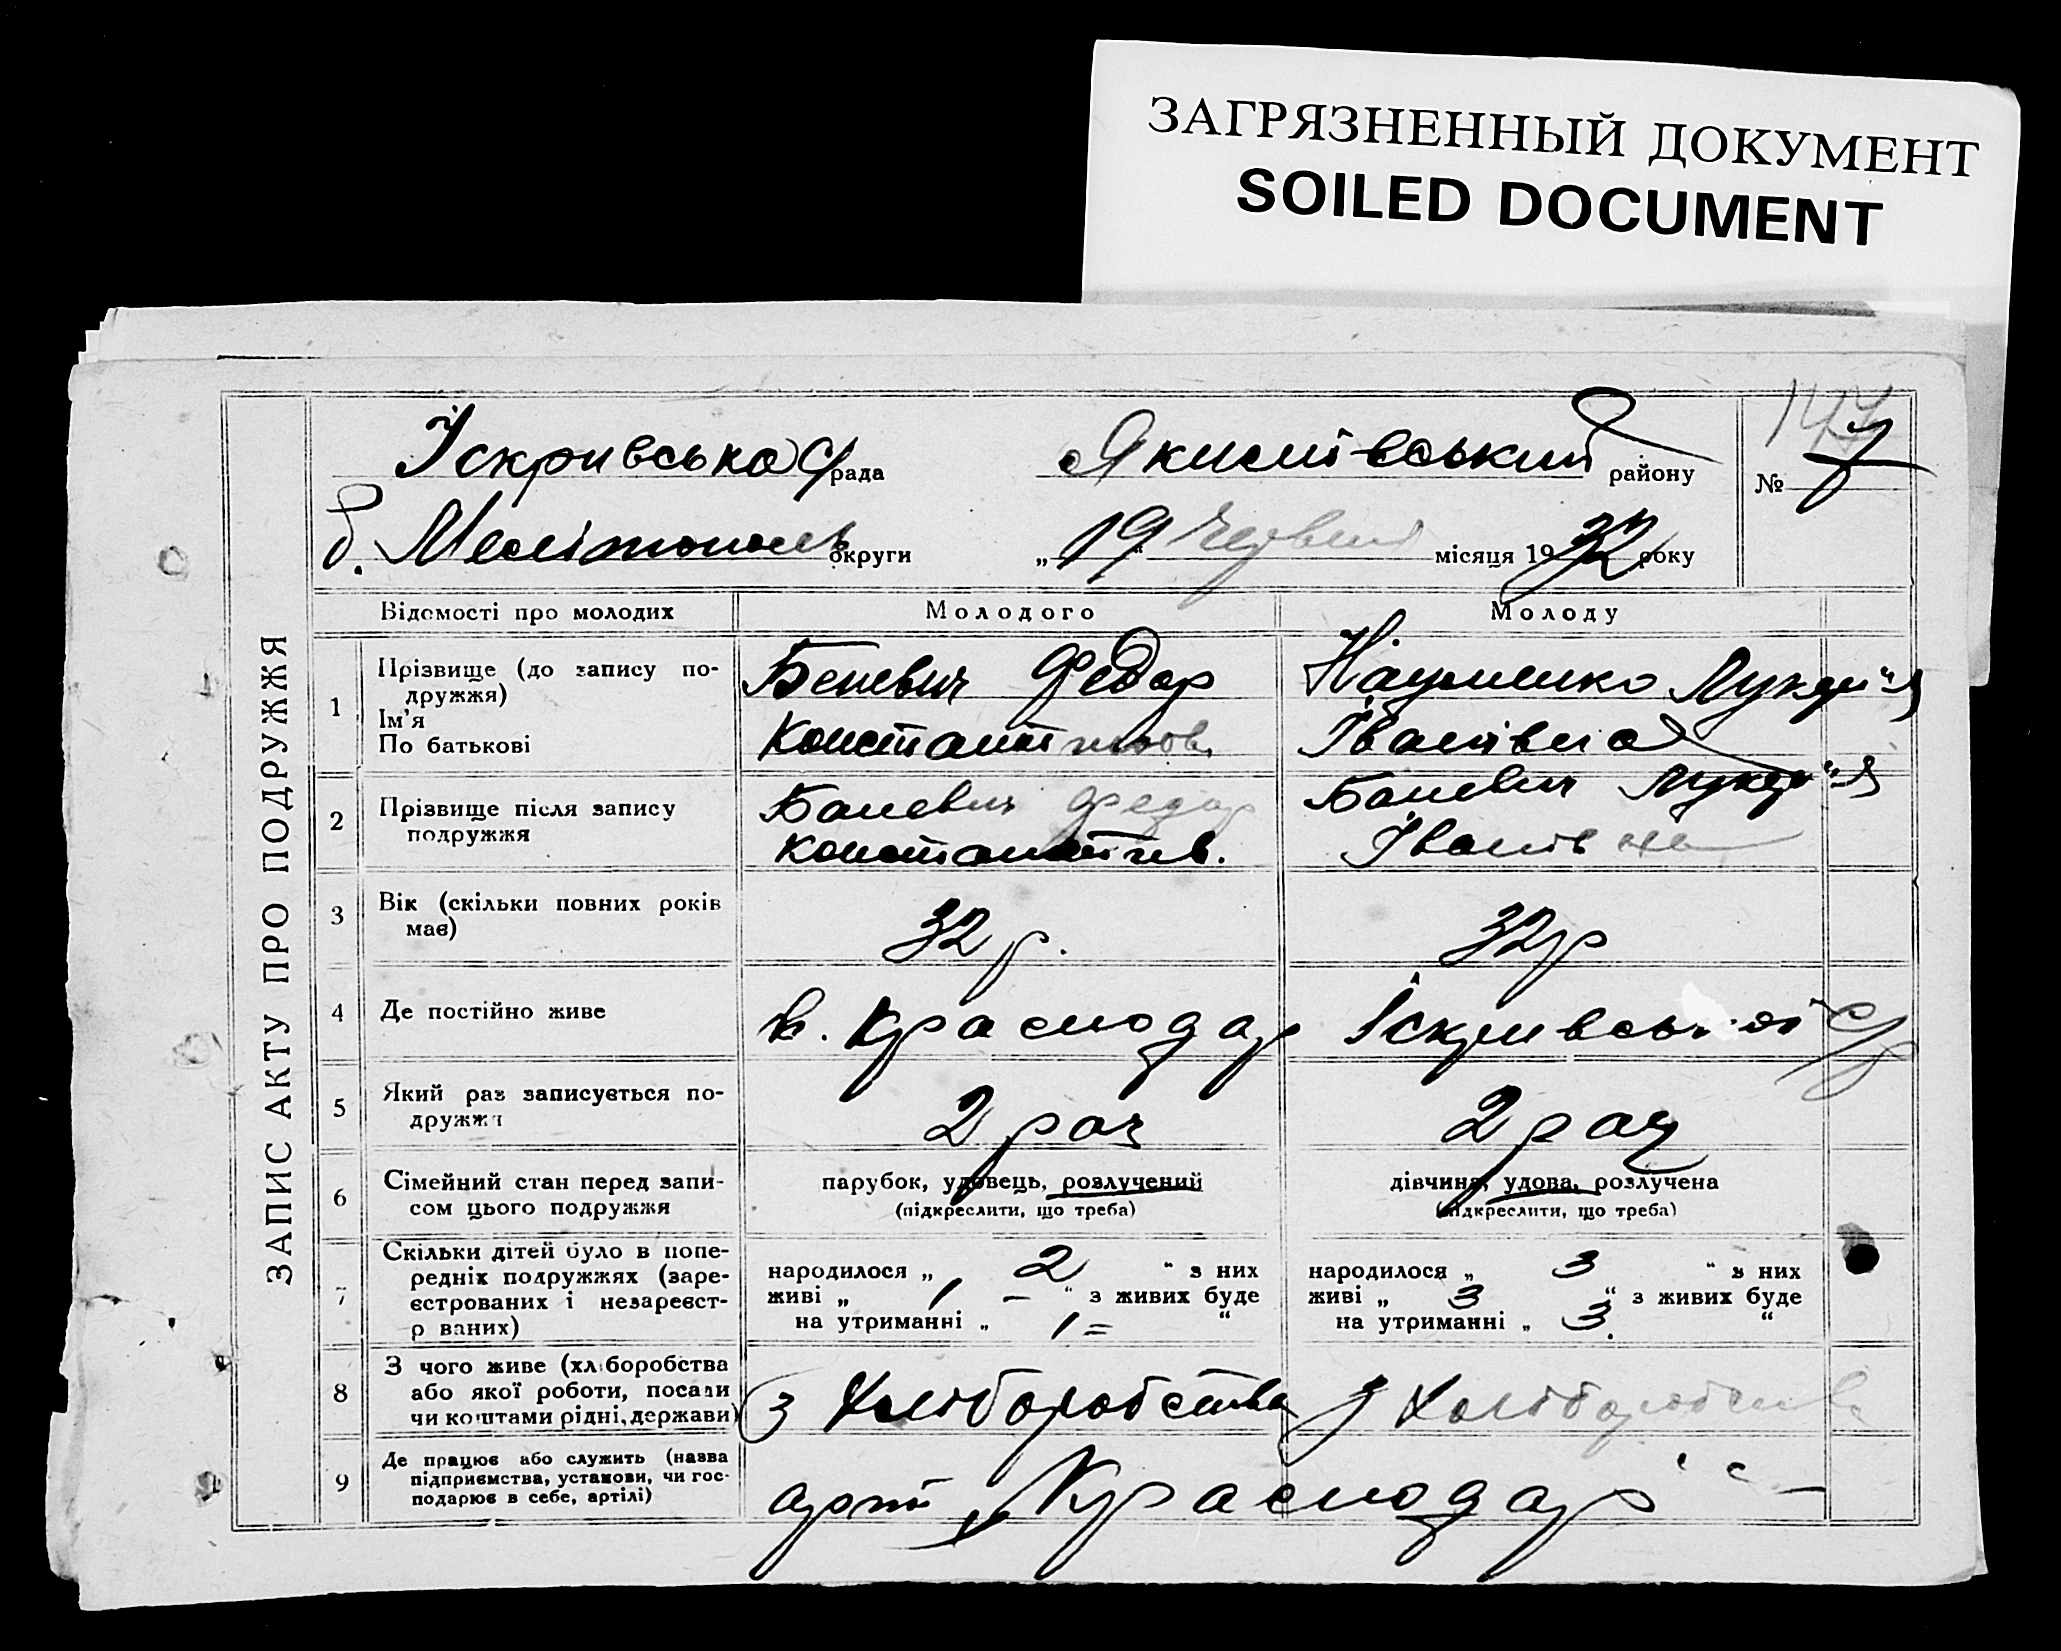 ЗАГРЯЗНЕННЫЙ ДОКУМЕНТ
SOILED DOCUMENT
ЗАПИС АКТУ ПРО ПОДРУЖЖЯ
Іскривська с/рада Якимівський району № 7
б. Мелітополь округи „19“ червня місяця 1932 року
Відомості про молодих Молодого Молоду
1 Прізвище (до запису подружжя) Беневич Федор Науменко
Ім'я
По батькові Константинов. Іванівна
2 Прізвище після запису Баневич Федор Баневич
подружжя Константинв. Іванівна
3 Вік (скільки повних років 32 р. 32 р
має)
4 Де постійно живе в. Краснодар Іскривської с/р
5 Який раз записується по- 2 раз 2 раз
дружжя
6 Сімейний стан перед запи- парубок, удовець, розлучений дівчина, удова, розлучена
сом цього подружжя (підкреслити, що треба) (підкреслити, що треба)
7 Скільки дітей було в попе- народилося „ 2 “ з них народилося „ 3 “ з них
редніх подружжях (заре- живі „ 1 – “ з живих буде живі „ 3 “ з живих буде
єстрованих і незареєст- на утриманні „ 1 = “ на утриманні „ 3. “
р ваних)
8 З чого живе (хліборобства з Хліборобства з Хліборобства
або якої роботи, посади
чи коштами рідні, держави)
9 Де працює або служить (назва арт „Краснодар“ –
підприємства, установи, чи гос-
подарює в себе, артілі)